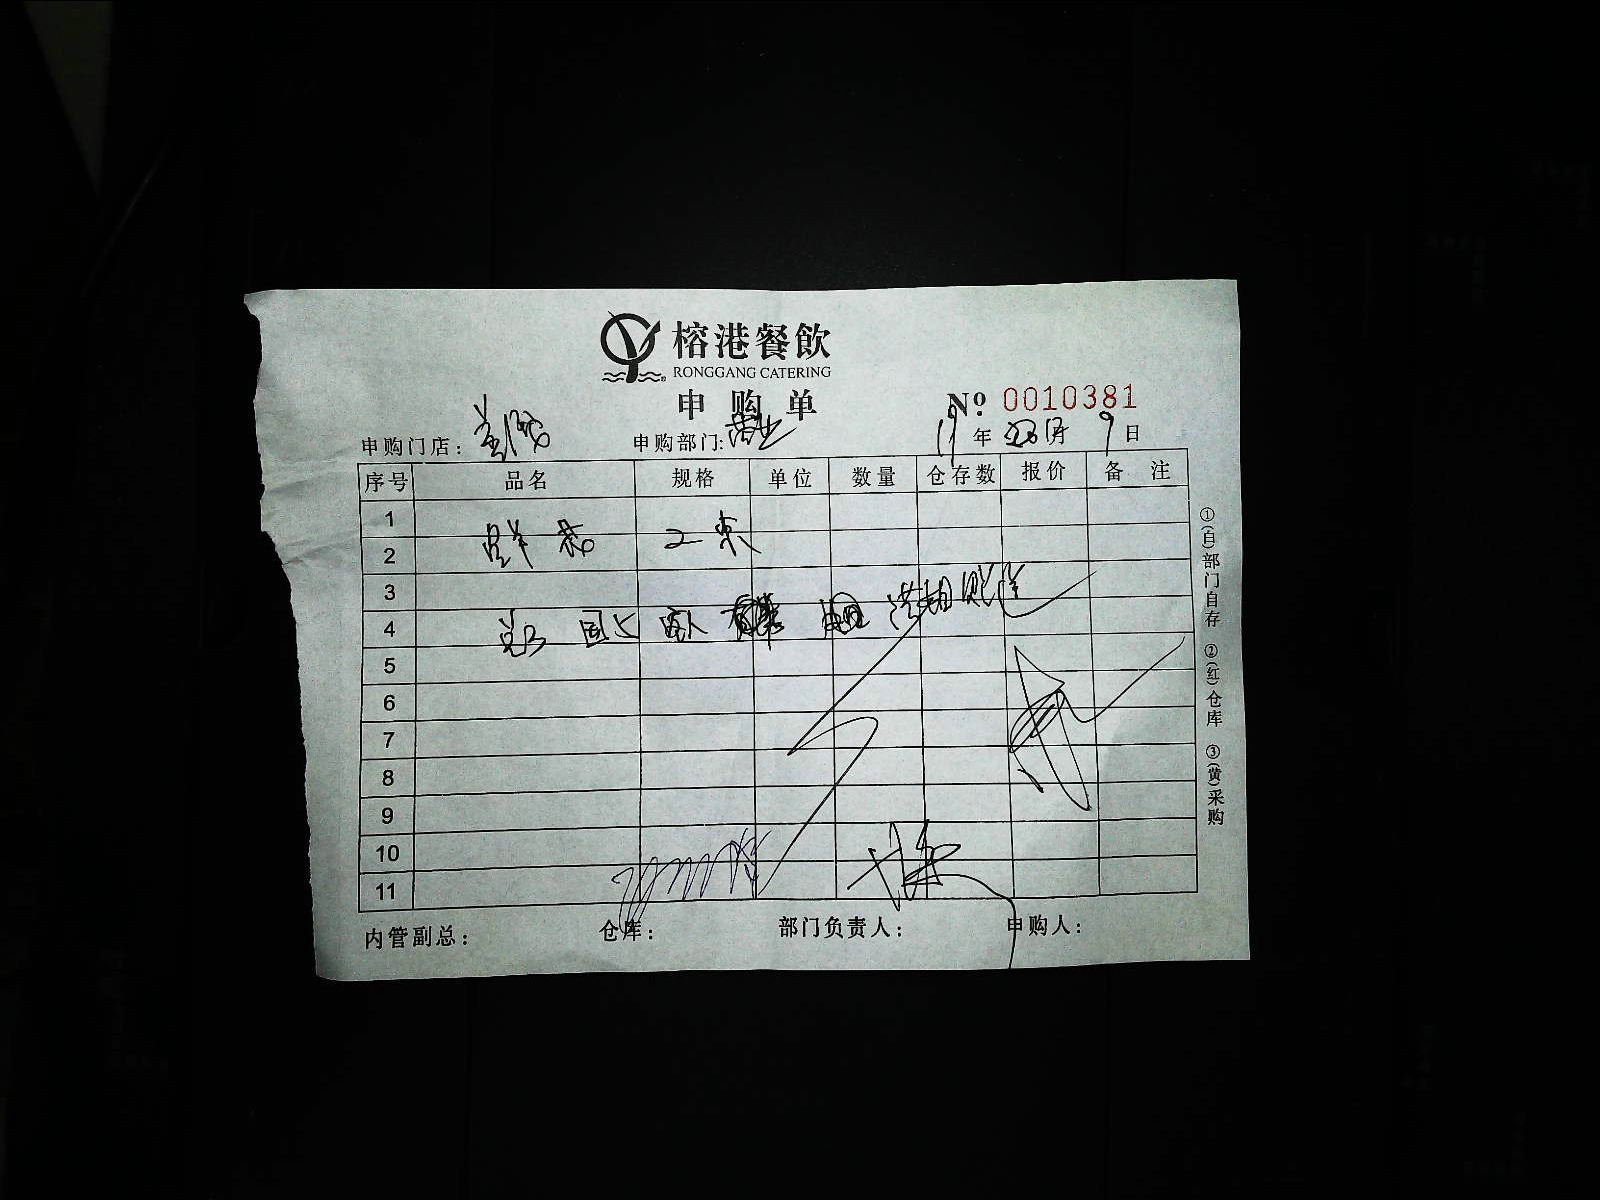 榕港餐飲
RONGGANG CATERING
申购单
№ 0010381
申购门店： 申购部门: 营业 19年 月 9日
序号 品名 规格 单位 数量 仓存数 报价 备注
1
2 鲜花 2束
3
4
5
6
7
8
9
10
11
内管副总： 仓库： 部门负责人： 申购人：
①(白)部门自存 ②(红)仓库 ③(黄)采购